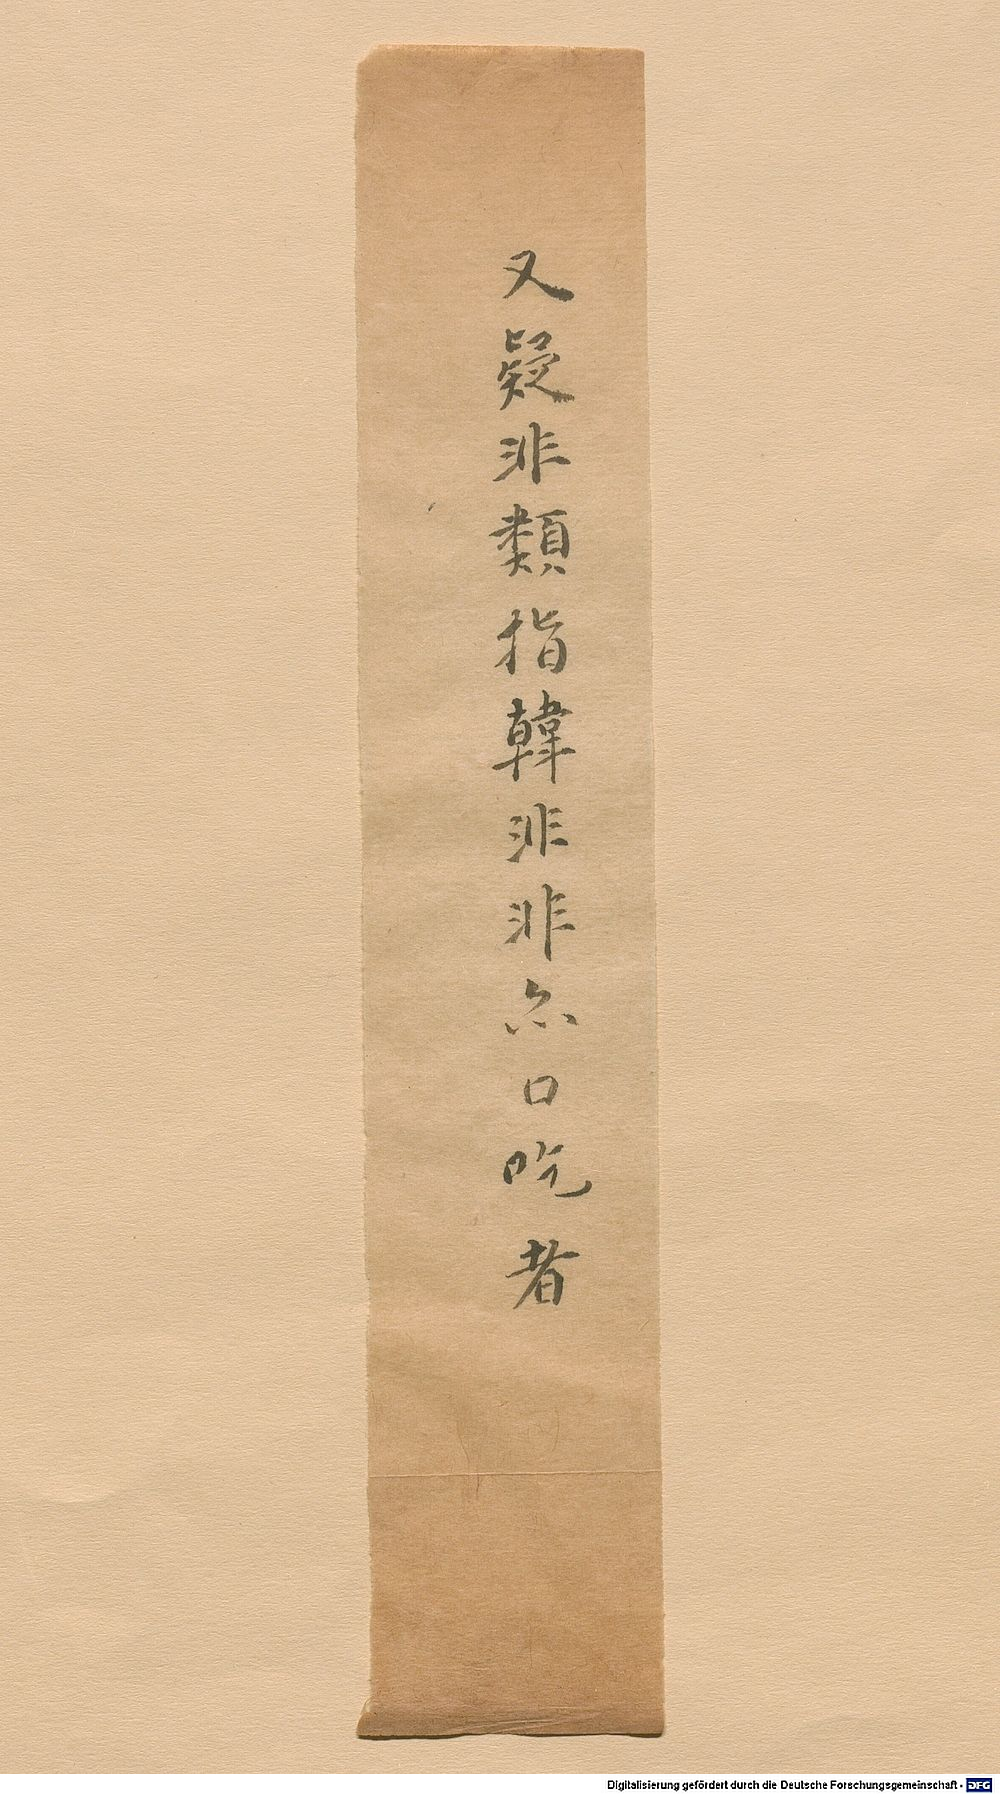 又疑非類指韓非非亦口吃者
Digitalisierung gefördert durch die Deutsche Forschungsgemeinschaft - DFG